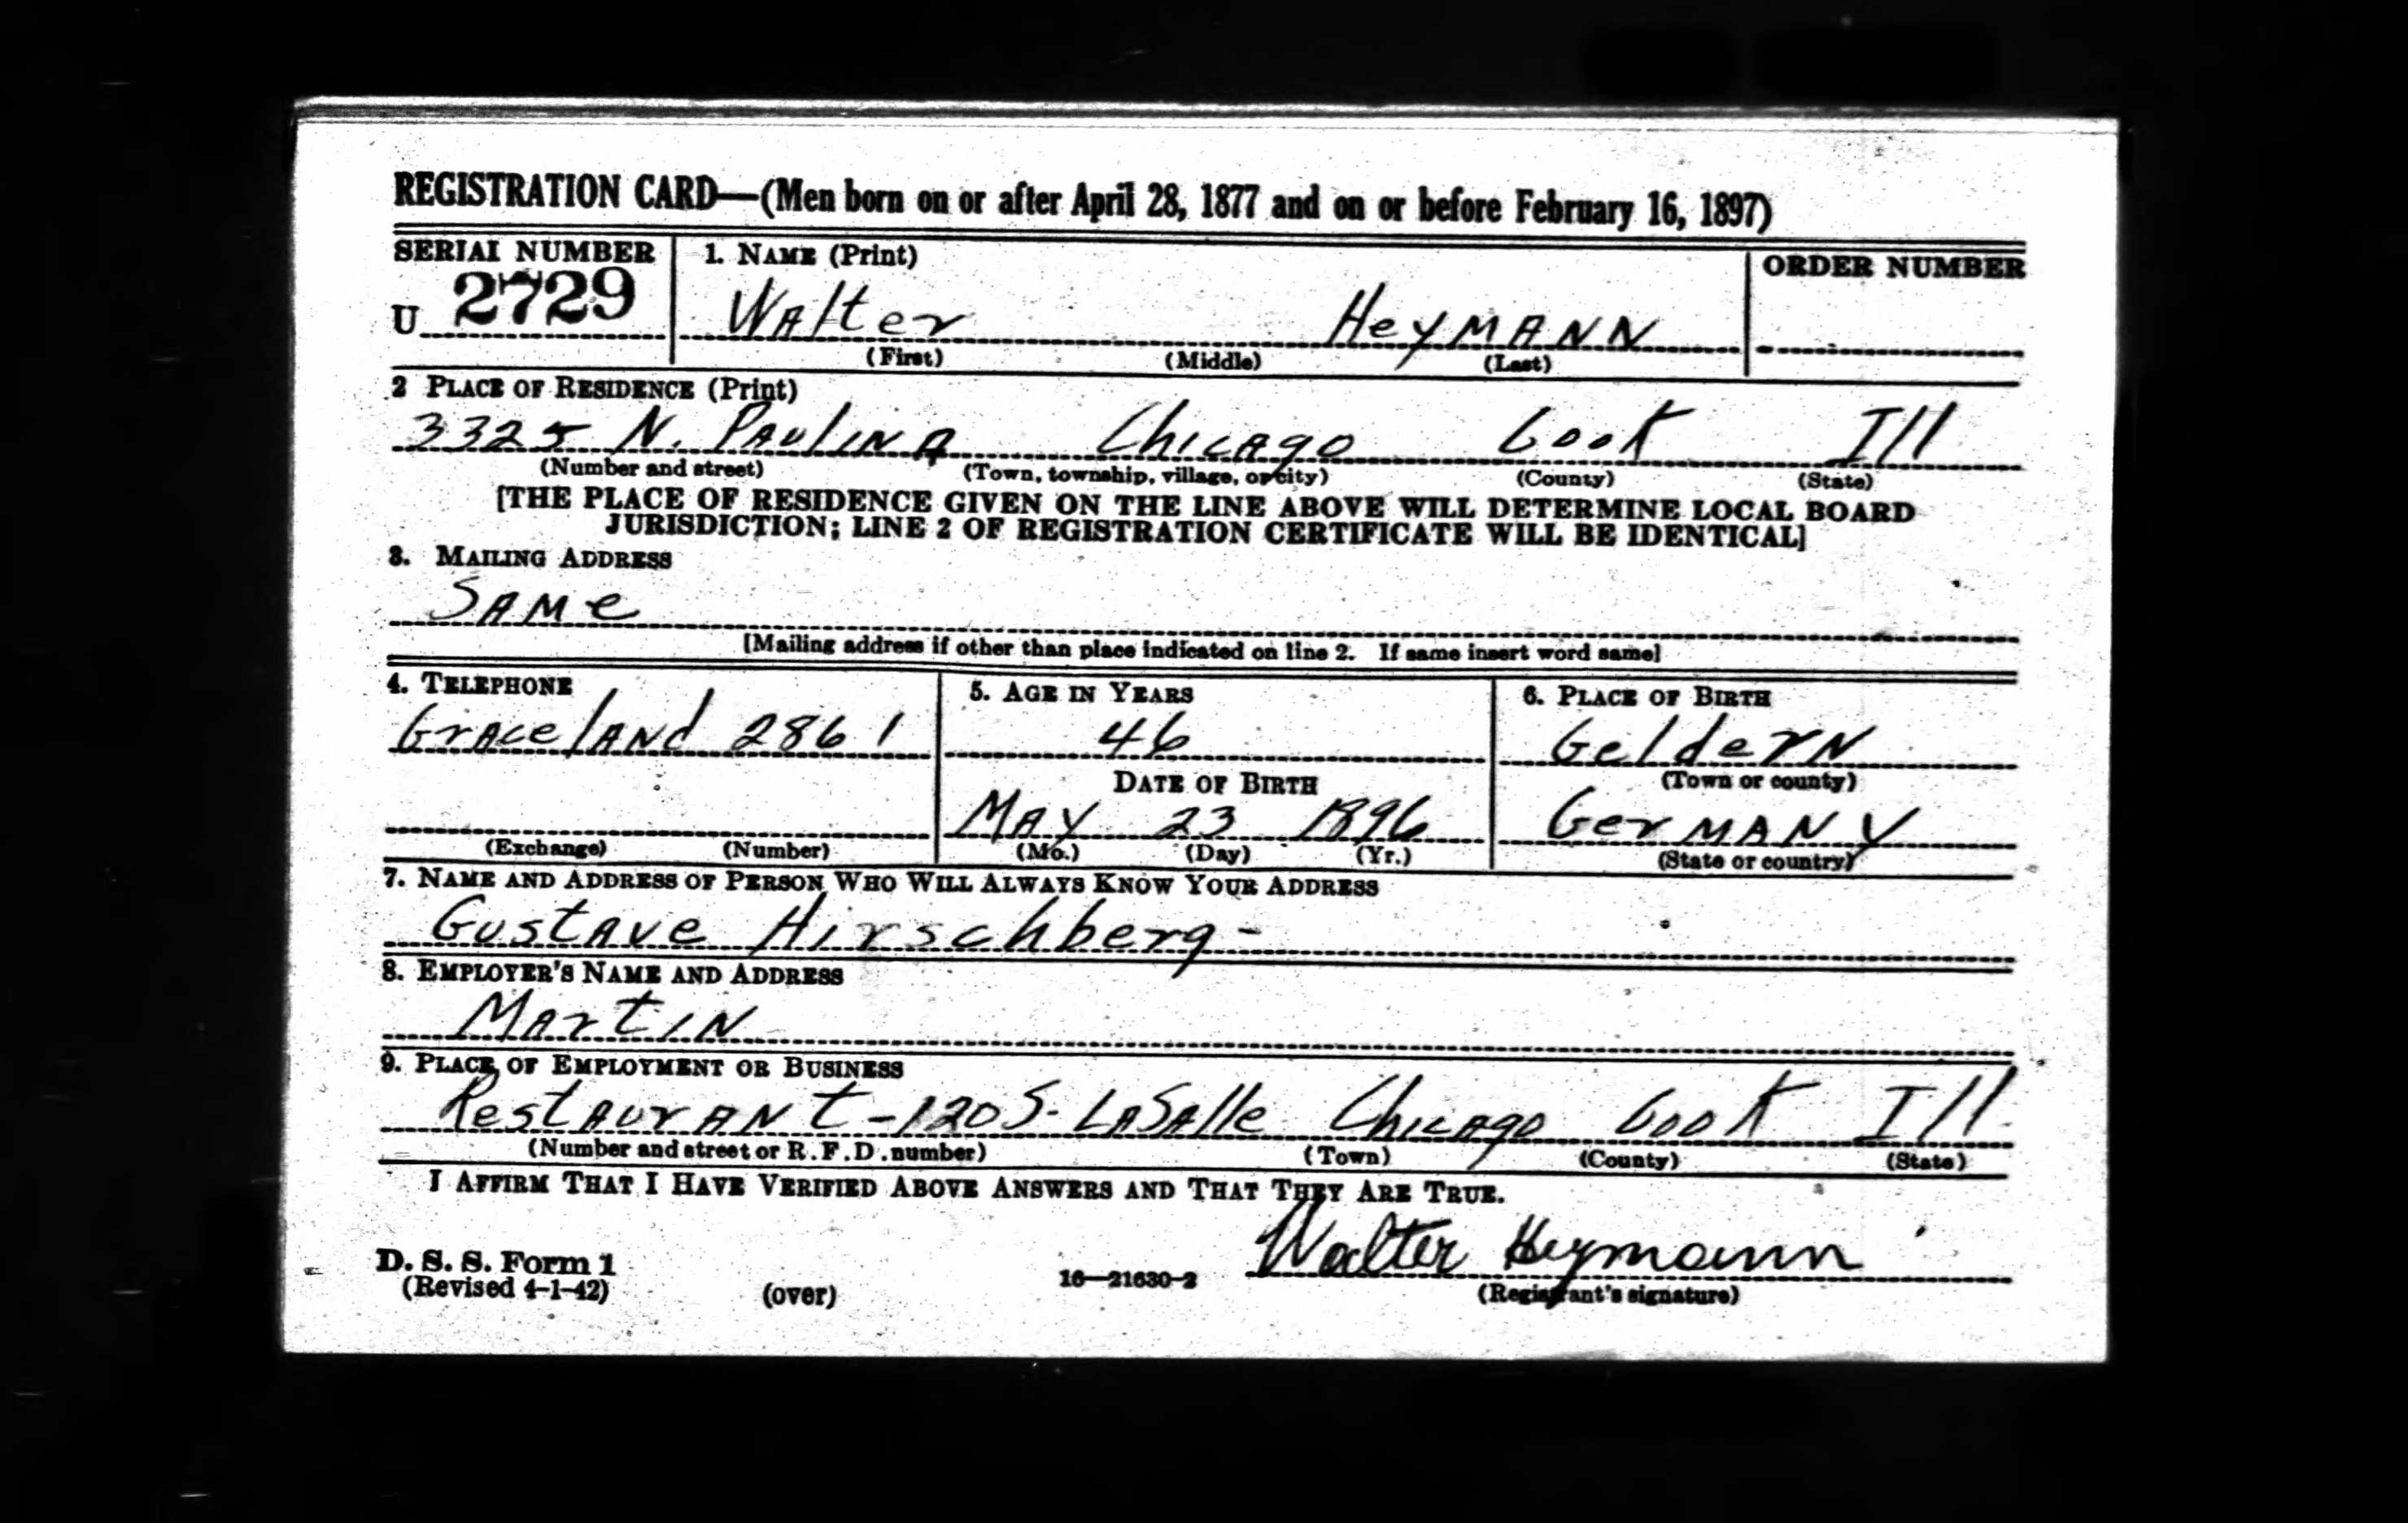 REGISTRATION CARD—(Men born on or after April 28, 1877 and on or before February 16, 1897)
SERIAL NUMBER
1. NAME (Print)
ORDER NUMBER
U 2729
Walter HeyMANN
(First) (Middle) (Last)
2 PLACE OF RESIDENCE (Print)
3325 N. PAULINA Chicago Cook Ill
(Number and street) (Town, township, village, or city) (County) (State)
[THE PLACE OF RESIDENCE GIVEN ON THE LINE ABOVE WILL DETERMINE LOCAL BOARD
JURISDICTION; LINE 2 OF REGISTRATION CERTIFICATE WILL BE IDENTICAL]
3. MAILING ADDRESS
SAMe
[Mailing address if other than place indicated on line 2. If same insert word same]
4. TELEPHONE
5. AGE IN YEARS
6. PLACE OF BIRTH
Graceland 2861
46
Geldern
DATE OF BIRTH
(Town or county)
MAY 23 1896
GerMANY
(Exchange) (Number)
(Mo.) (Day) (Yr.)
(State or country)
7. NAME AND ADDRESS OF PERSON WHO WILL ALWAYS KNOW YOUR ADDRESS
Gustave Hirschberg-
8. EMPLOYER'S NAME AND ADDRESS
Martin
9. PLACE OF EMPLOYMENT OR BUSINESS
Restaurant-120 S. LaSalle Chicago Cook Ill.
(Number and street or R.F.D. number) (Town) (County) (State)
I AFFIRM THAT I HAVE VERIFIED ABOVE ANSWERS AND THAT THEY ARE TRUE.
Walter Heymann
D. S. S. Form 1
(Revised 4-1-42) (over) 16—21630-2 (Registrant's signature)